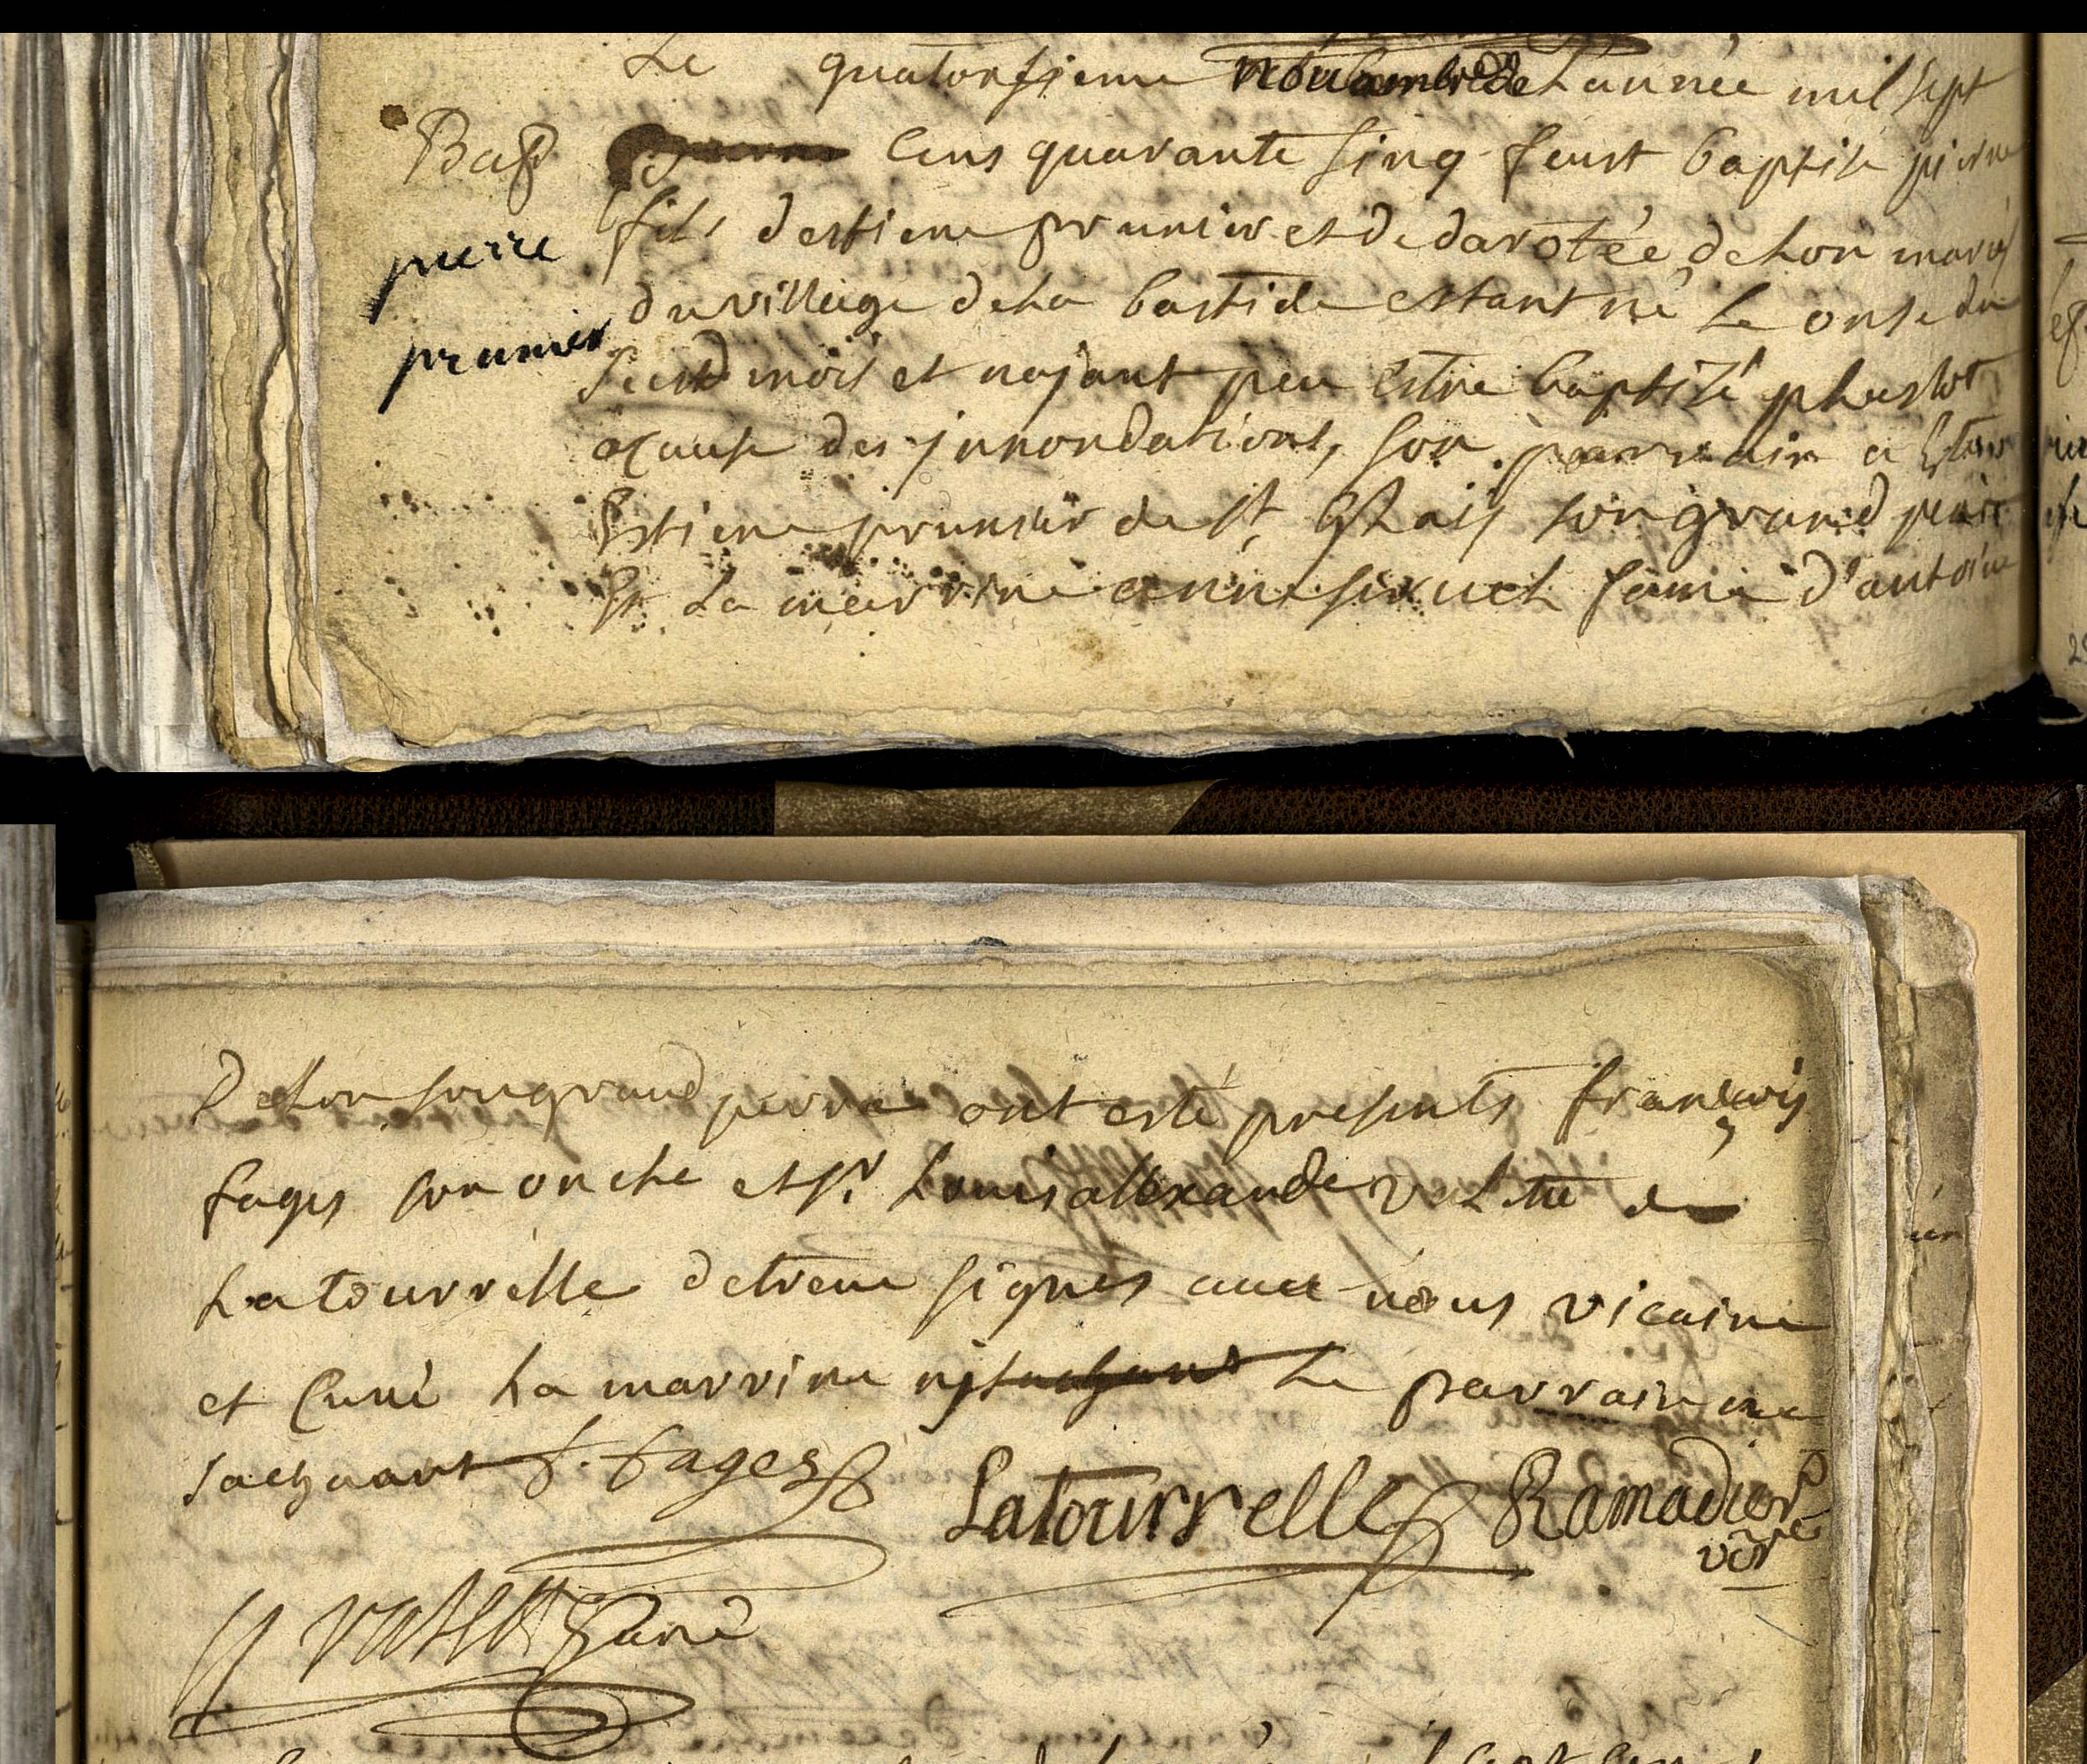 Le quatorsieme nouambre de L'année mil sept
Bap
cens quarante sinq feust baptisé pierre
pierre
fils d'estiene prunier et de darotée dehon mariés
du village de La bastide estant né Le onse du
prunier
susd mois et najant peu estre baptisé plustot
acause des jnnondations, son parrain a Esté
Estiene prunier de st son grand peire
Et La marrine anne femme d'antoine
dehon son grand peire ont esté presents françois
fages son oncle et sr Louis alexandre valette de
La tourrelle de treve signes avec nous vicaire
et Curé La marrine ny Le parrain ne
sachant f. fages
Latourrelle Ramadier
vicre
valette Curé